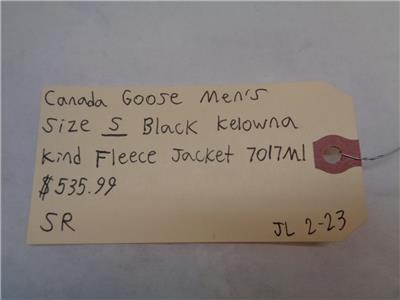 Canada Goose Men's
Size S Black Kelowna
Kind Fleece Jacket 7017M1
$535.99
SR JL 2-23